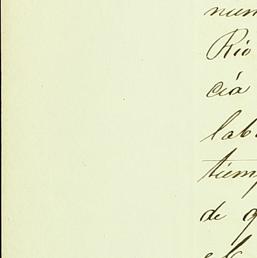 num
Rio
cia
lab
tiem
de q